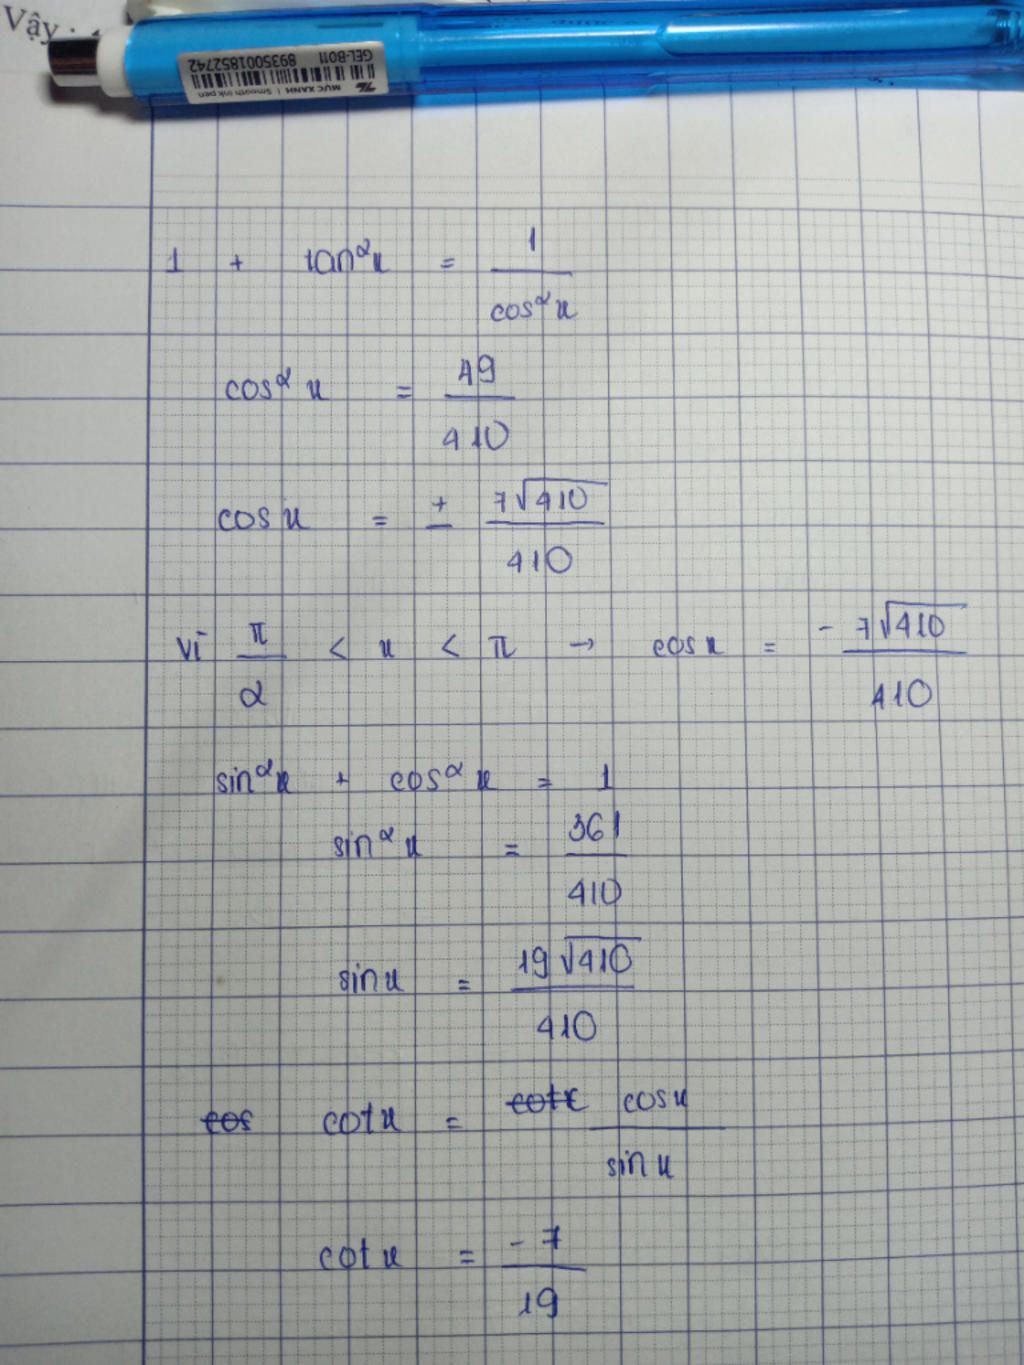 Vậy :
GEL-B011 8935001852742
MỰC XANH | Smooth ink pen
1 + tan²x = 1/cos²x
cos²x = 49/410
cos x = ± 7√410/410
Vì π/2 < x < π → cos x = -7√410/410
sin²x + cos²x = 1
sin²x = 361/410
sin x = 19√410/410
cos cot x = cotx cos x/sin x
cot x = -7/19